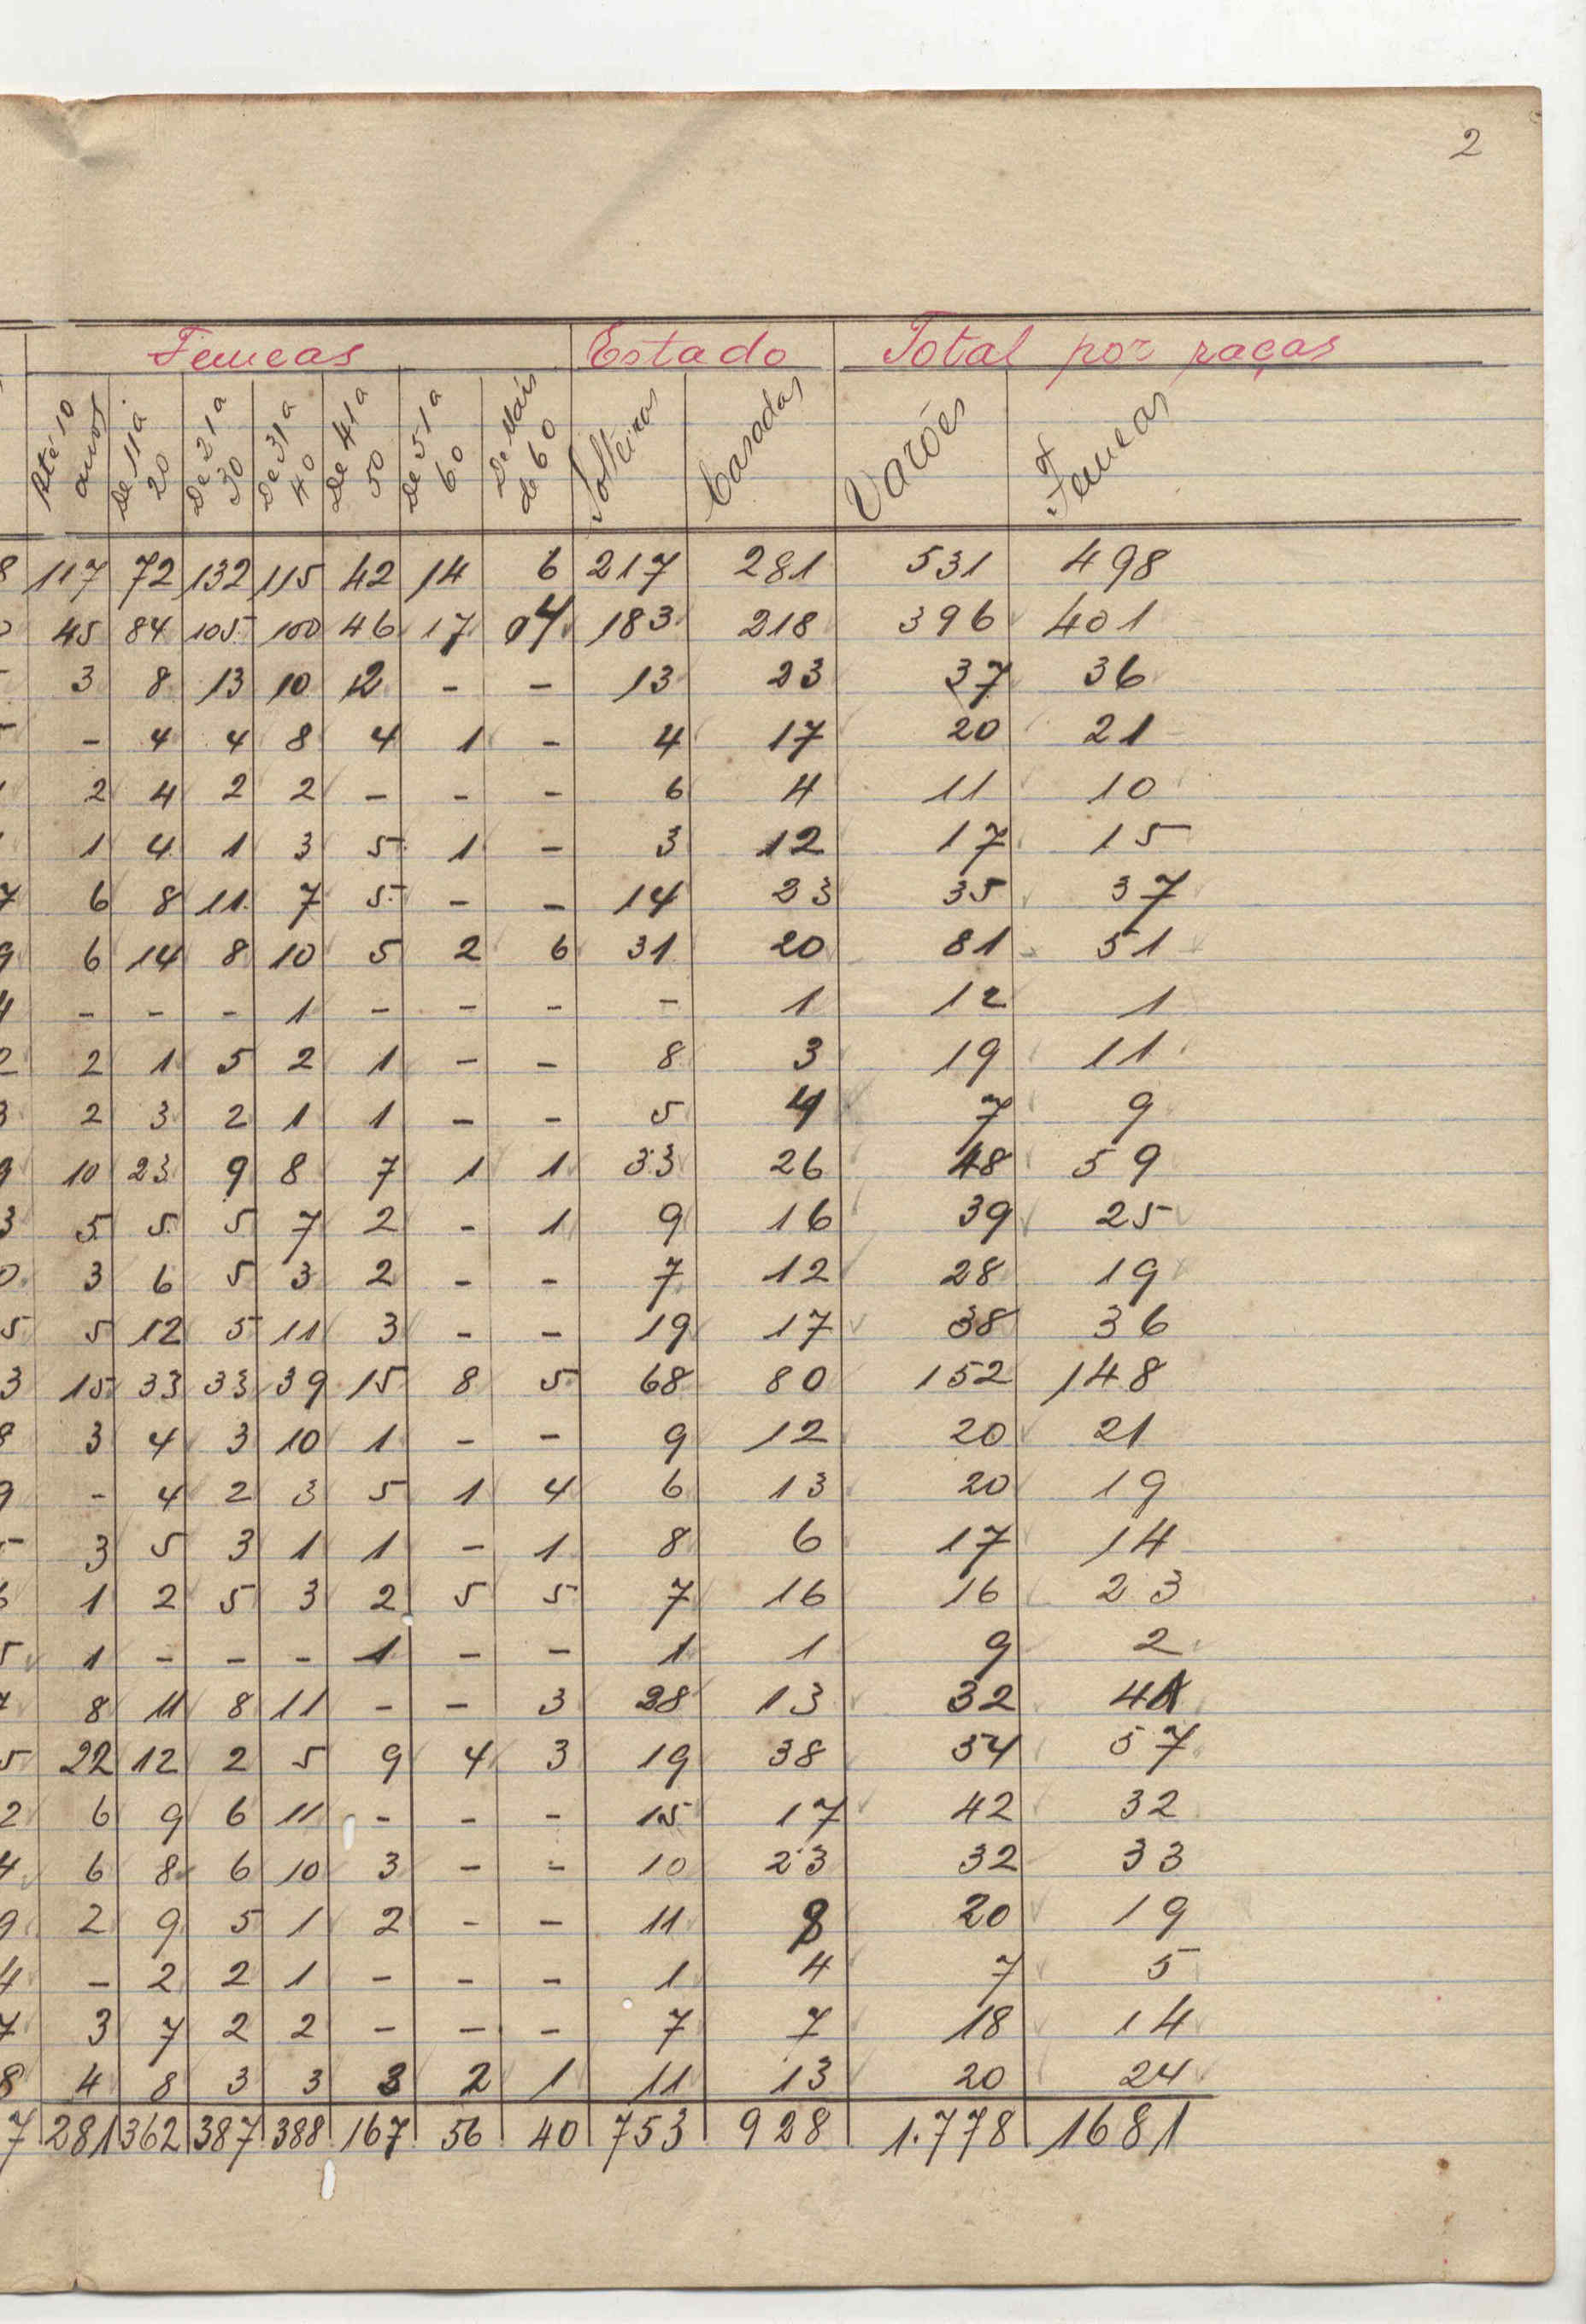 2
Femeas Estado Total por raças
Até 10 annos De 11 a 20 De 21 a 30 De 31 a 40 De 41 a 50 De 51 a 60 De Mais de 60 Solteiras Casadas Varões Femeas
8 117 72 132 115 42 14 6 217 281 531 498
45 84 105 100 46 17 04 183 218 396 401
3 8 13 10 2 - - 13 23 37 36
- 4 4 8 4 1 - 4 17 20 21
2 4 2 2 - - - 6 4 11 10
1 4 1 3 5 1 - 3 12 17 15
7 6 8 11 7 5 - - 14 23 35 37
9 6 14 8 10 5 2 6 31 20 81 51
4 - - - 1 - - - - 1 12 1
2 2 1 5 2 1 - - 8 3 19 11
3 2 3 2 1 1 - - 5 4 7 9
9 10 23 9 8 7 1 1 33 26 48 59
3 5 5 5 7 2 - 1 9 16 39 25
0 3 6 5 3 2 - - 7 12 28 19
5 5 12 5 11 3 - - 19 17 38 36
3 15 33 33 39 15 8 5 68 80 152 148
8 3 4 3 10 1 - - 9 12 20 21
9 - 4 2 3 5 1 4 6 13 20 19
3 5 3 1 1 - 1 8 6 17 14
1 2 5 3 2 5 5 7 16 16 23
5 1 - - - 1 - - 1 1 9 2
8 11 8 11 - - 3 28 13 32 41
5 22 12 2 5 9 4 3 19 38 54 57
2 6 9 6 11 - - - 15 17 42 32
4 6 8 6 10 3 - - 10 23 32 33
9 2 9 5 1 2 - - 11 8 20 19
4 - 2 2 1 - - - 1 4 7 5
7 3 7 2 2 - - - 7 7 18 14
8 4 8 3 3 3 2 1 11 13 20 24
7 281 362 387 388 167 56 40 753 928 1.778 1681